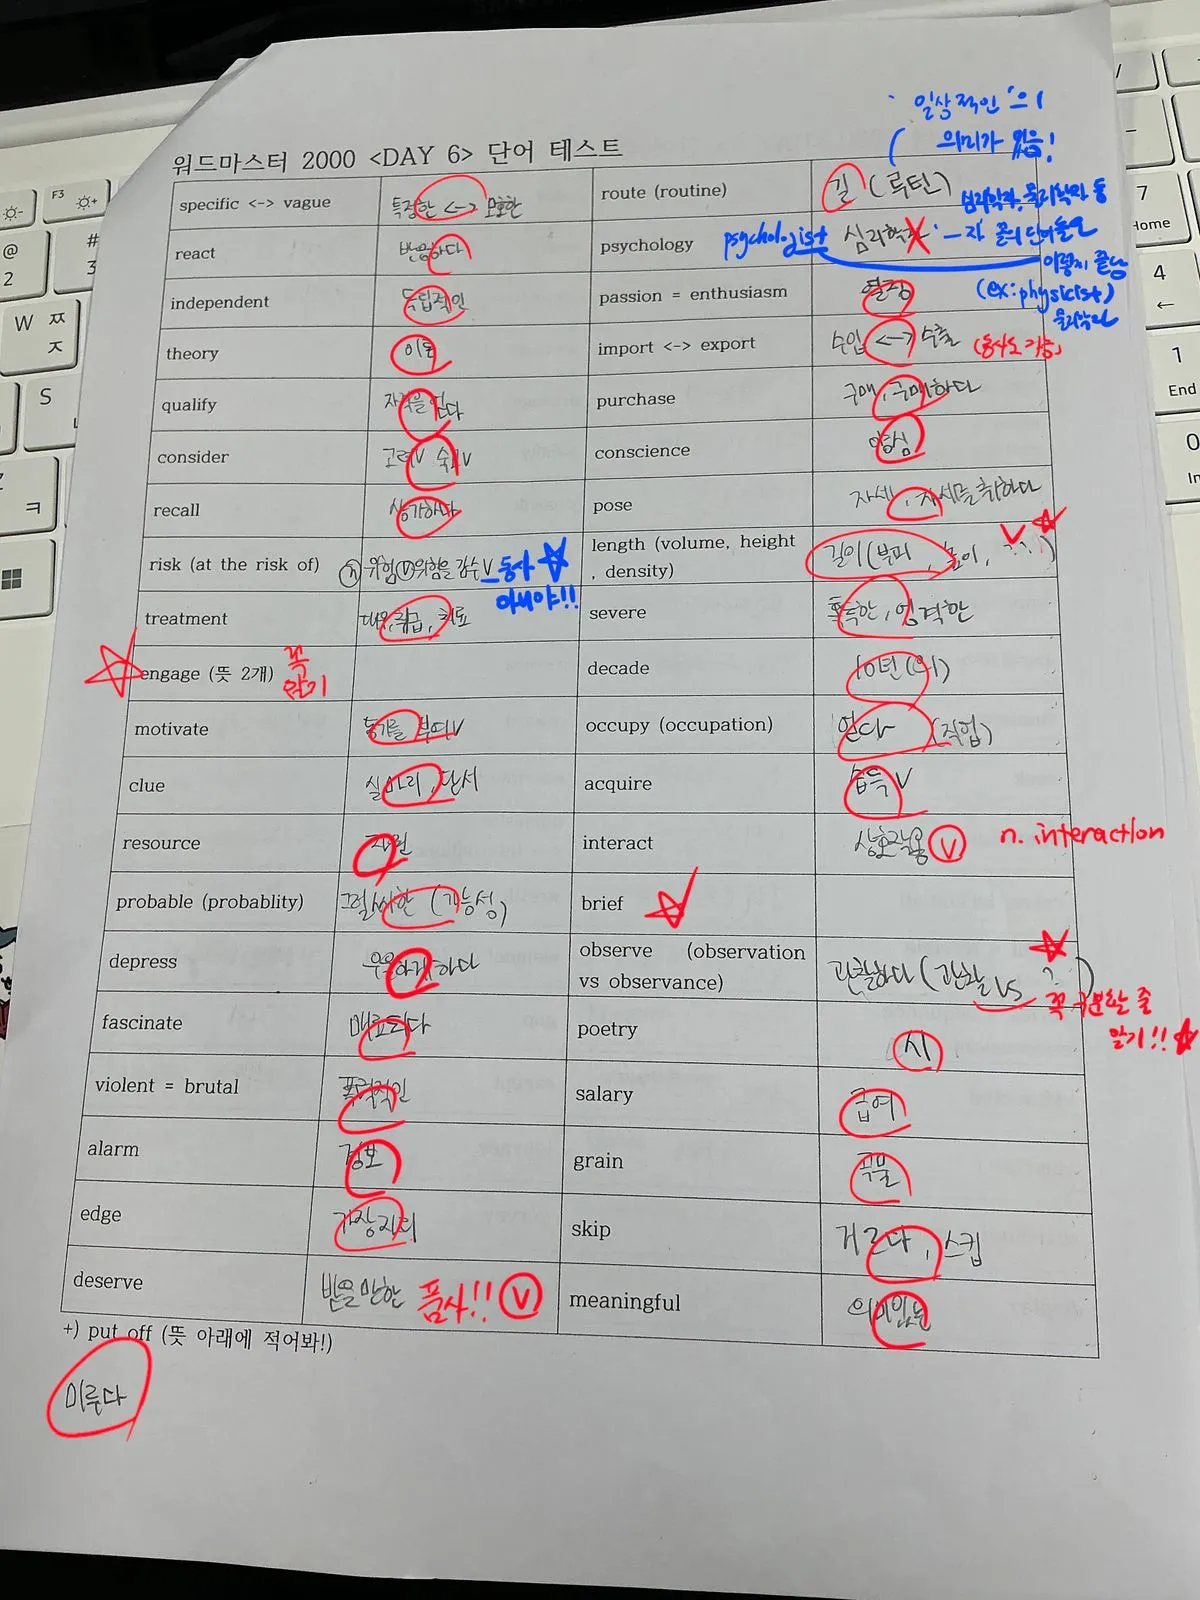 일상적인'의
의미가 있음!
워드마스터 2000 <DAY 6> 단어 테스트
specific <-> vague 특정한 <-> 모호한 route (routine) 길 (루틴)
심리학자, 물리학자 등
react 반응하다 psychology psychologist 심리학자 X -자 끝의 단어들은
이렇게 끝남
independent 독립적인 passion = enthusiasm 열정 (ex: physicist)
물리학자
theory 이론 import <-> export 수입 <-> 수출 (동사도 가능)
qualify 자격을 얻다 purchase 구매, 구매하다
consider 고려V 숙고V conscience 양심
recall 상기하다 pose 자세, 자세를 취하다
risk (at the risk of) ⓝ 위험 ⓥ 위험을 감수V 동사 length (volume, height , density) 길이 (부피, 높이, ??)
아니야!!
treatment 대우, 취급, 치료 severe 혹독한, 엄격한
engage (뜻 2개) 꼭 알기 decade 10년 (의)
motivate 동기를 부여V occupy (occupation) 얻다 (직업)
clue 실마리, 단서 acquire 습득V
resource 자원 interact 상호작용 V n. interaction
probable (probablity) 그럴싸한 (가능성) brief
depress 우울하게하다 observe (observation vs observance) 관찰하다 (관찰 vs ?)
꼭 구분할 줄
알기!!
fascinate 매료되다 poetry 시
violent = brutal 폭력적인 salary 급여
alarm 경보 grain 곡물
edge 가장자리 skip 거르다, 스킵
deserve 받을만한 품사!! V meaningful 의미있는
+) put off (뜻 아래에 적어봐!)
미루다
F3
@
2
#
3
W ㅉ
ㅈ
S
ㅋ
7
Home
4
←
1
End
0